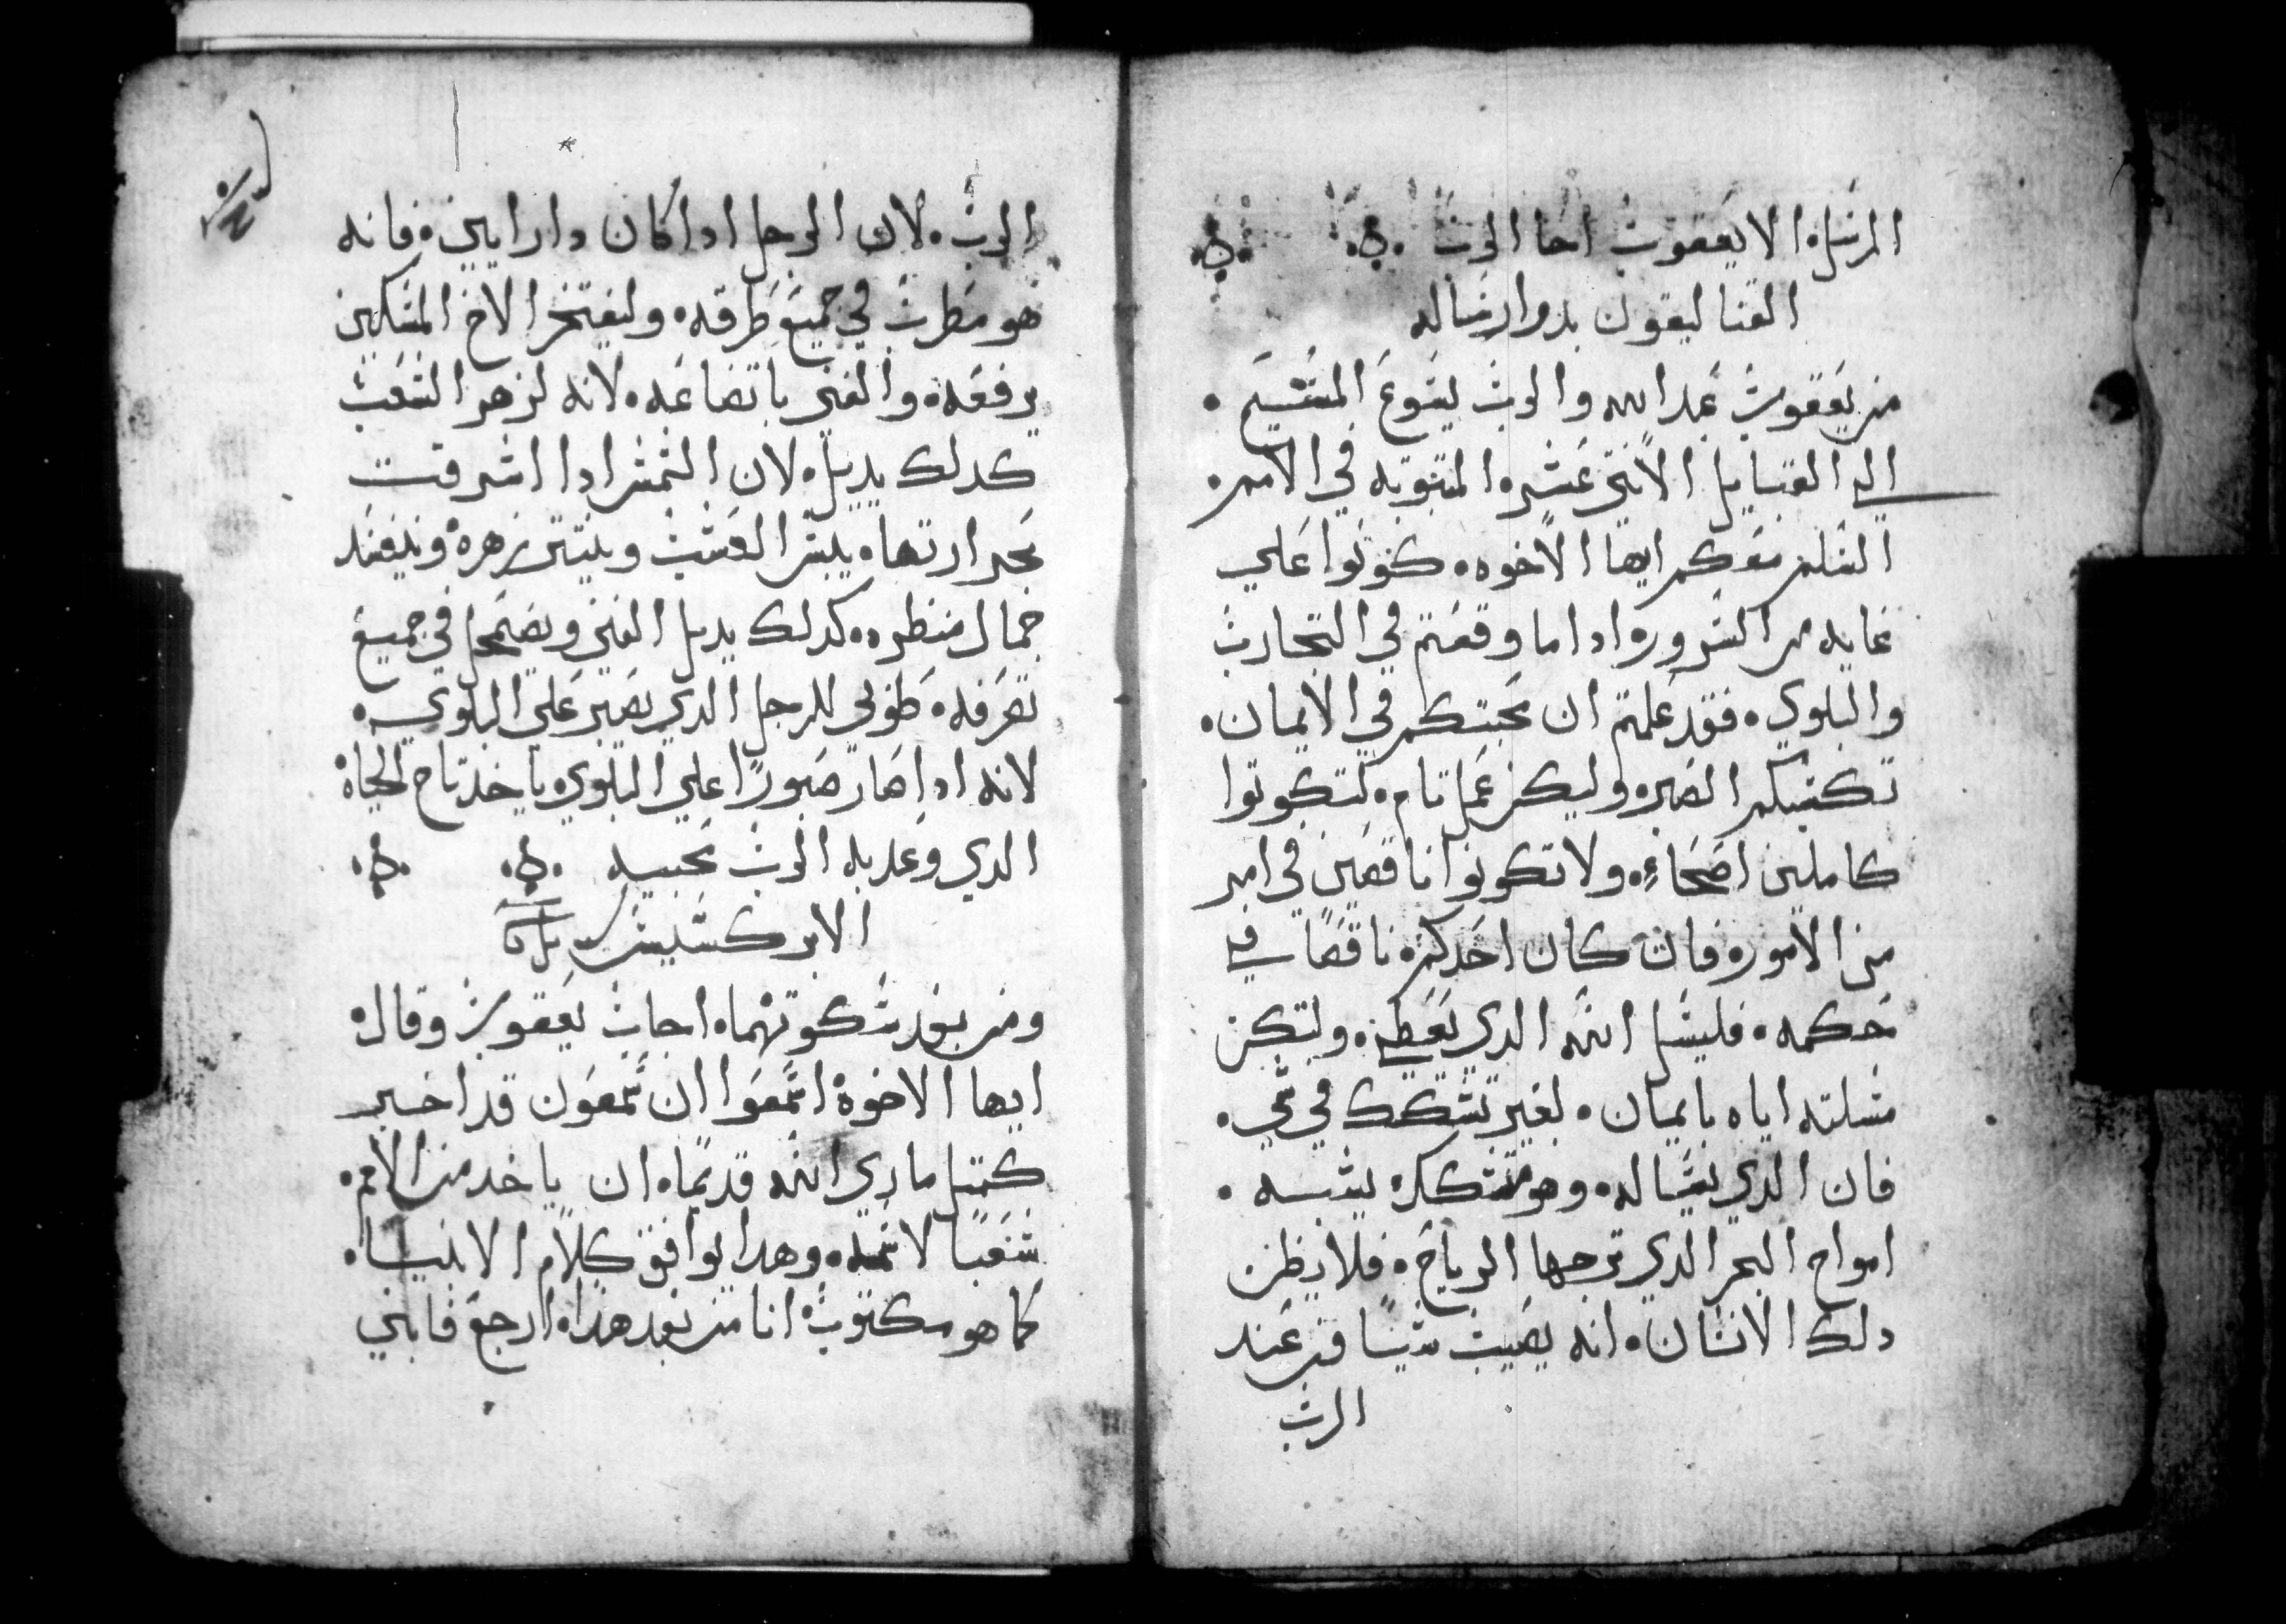 المرسل الا يعقوب اخا الرب
القتاليقون بدو ارساله
من يعقوب عبد الله والرب يسوع المسيح
الي القبايل الاتني عشره المتبوته في الامم
السلم معكم ايها الاخوه كونوا علي
غايه من السرور اداما وقعتم في التجارب
والبلوي فقد علمتم ان محبتكم في الايمان
تكسبكم الصبر وليكن عمل تام لتكونوا
كاملين اصحاء ولا تكونوا ناقصين في امر
من الامور فان كان احدكم ناقصا في
حكمه فليسل الله الدي يعطي ولتكن
مسلته اياه بايمان بغير تشكك في شي
فان الدي يساله وهو متشكك يشبه
امواج البحر الدي ترجها الرياح فلا يظن
دلك الانسان انه يصيب شيا من عند
الرب
الرب لان الرجل اداكان دا رايين فانه
هو مضطرب في جميع طرقه وليفتخر الاخ المسكين
برفعه والغني باتضاعه لانه كزهر العشب
كدلك يدبل لان الشمس ادا اشرقت
بحرارتها يبس العشب وينتثر زهره ويفسد
جمال منظره كدلك يدبل الغني ويضمحل في جميع
تصرفه طوبي للرجل الدي يصبر علي البلوي
لانه ادا صار صبورا علي البلوي ياخد تاج الحياة
الدي وعد به الرب محبيه
الابركسيس
ومن بعد سكوتهما اجاب يعقوب وقال
ايها الاخوة اسمعوا ان سمعون قد اخبر
كمتل مابدي الله قديما ان ياخد من الامم
شعبا لاسمه وهدا يوافق كلام الانبياء
كما هو مكتوب انا من بعد هدا ارجع فابني